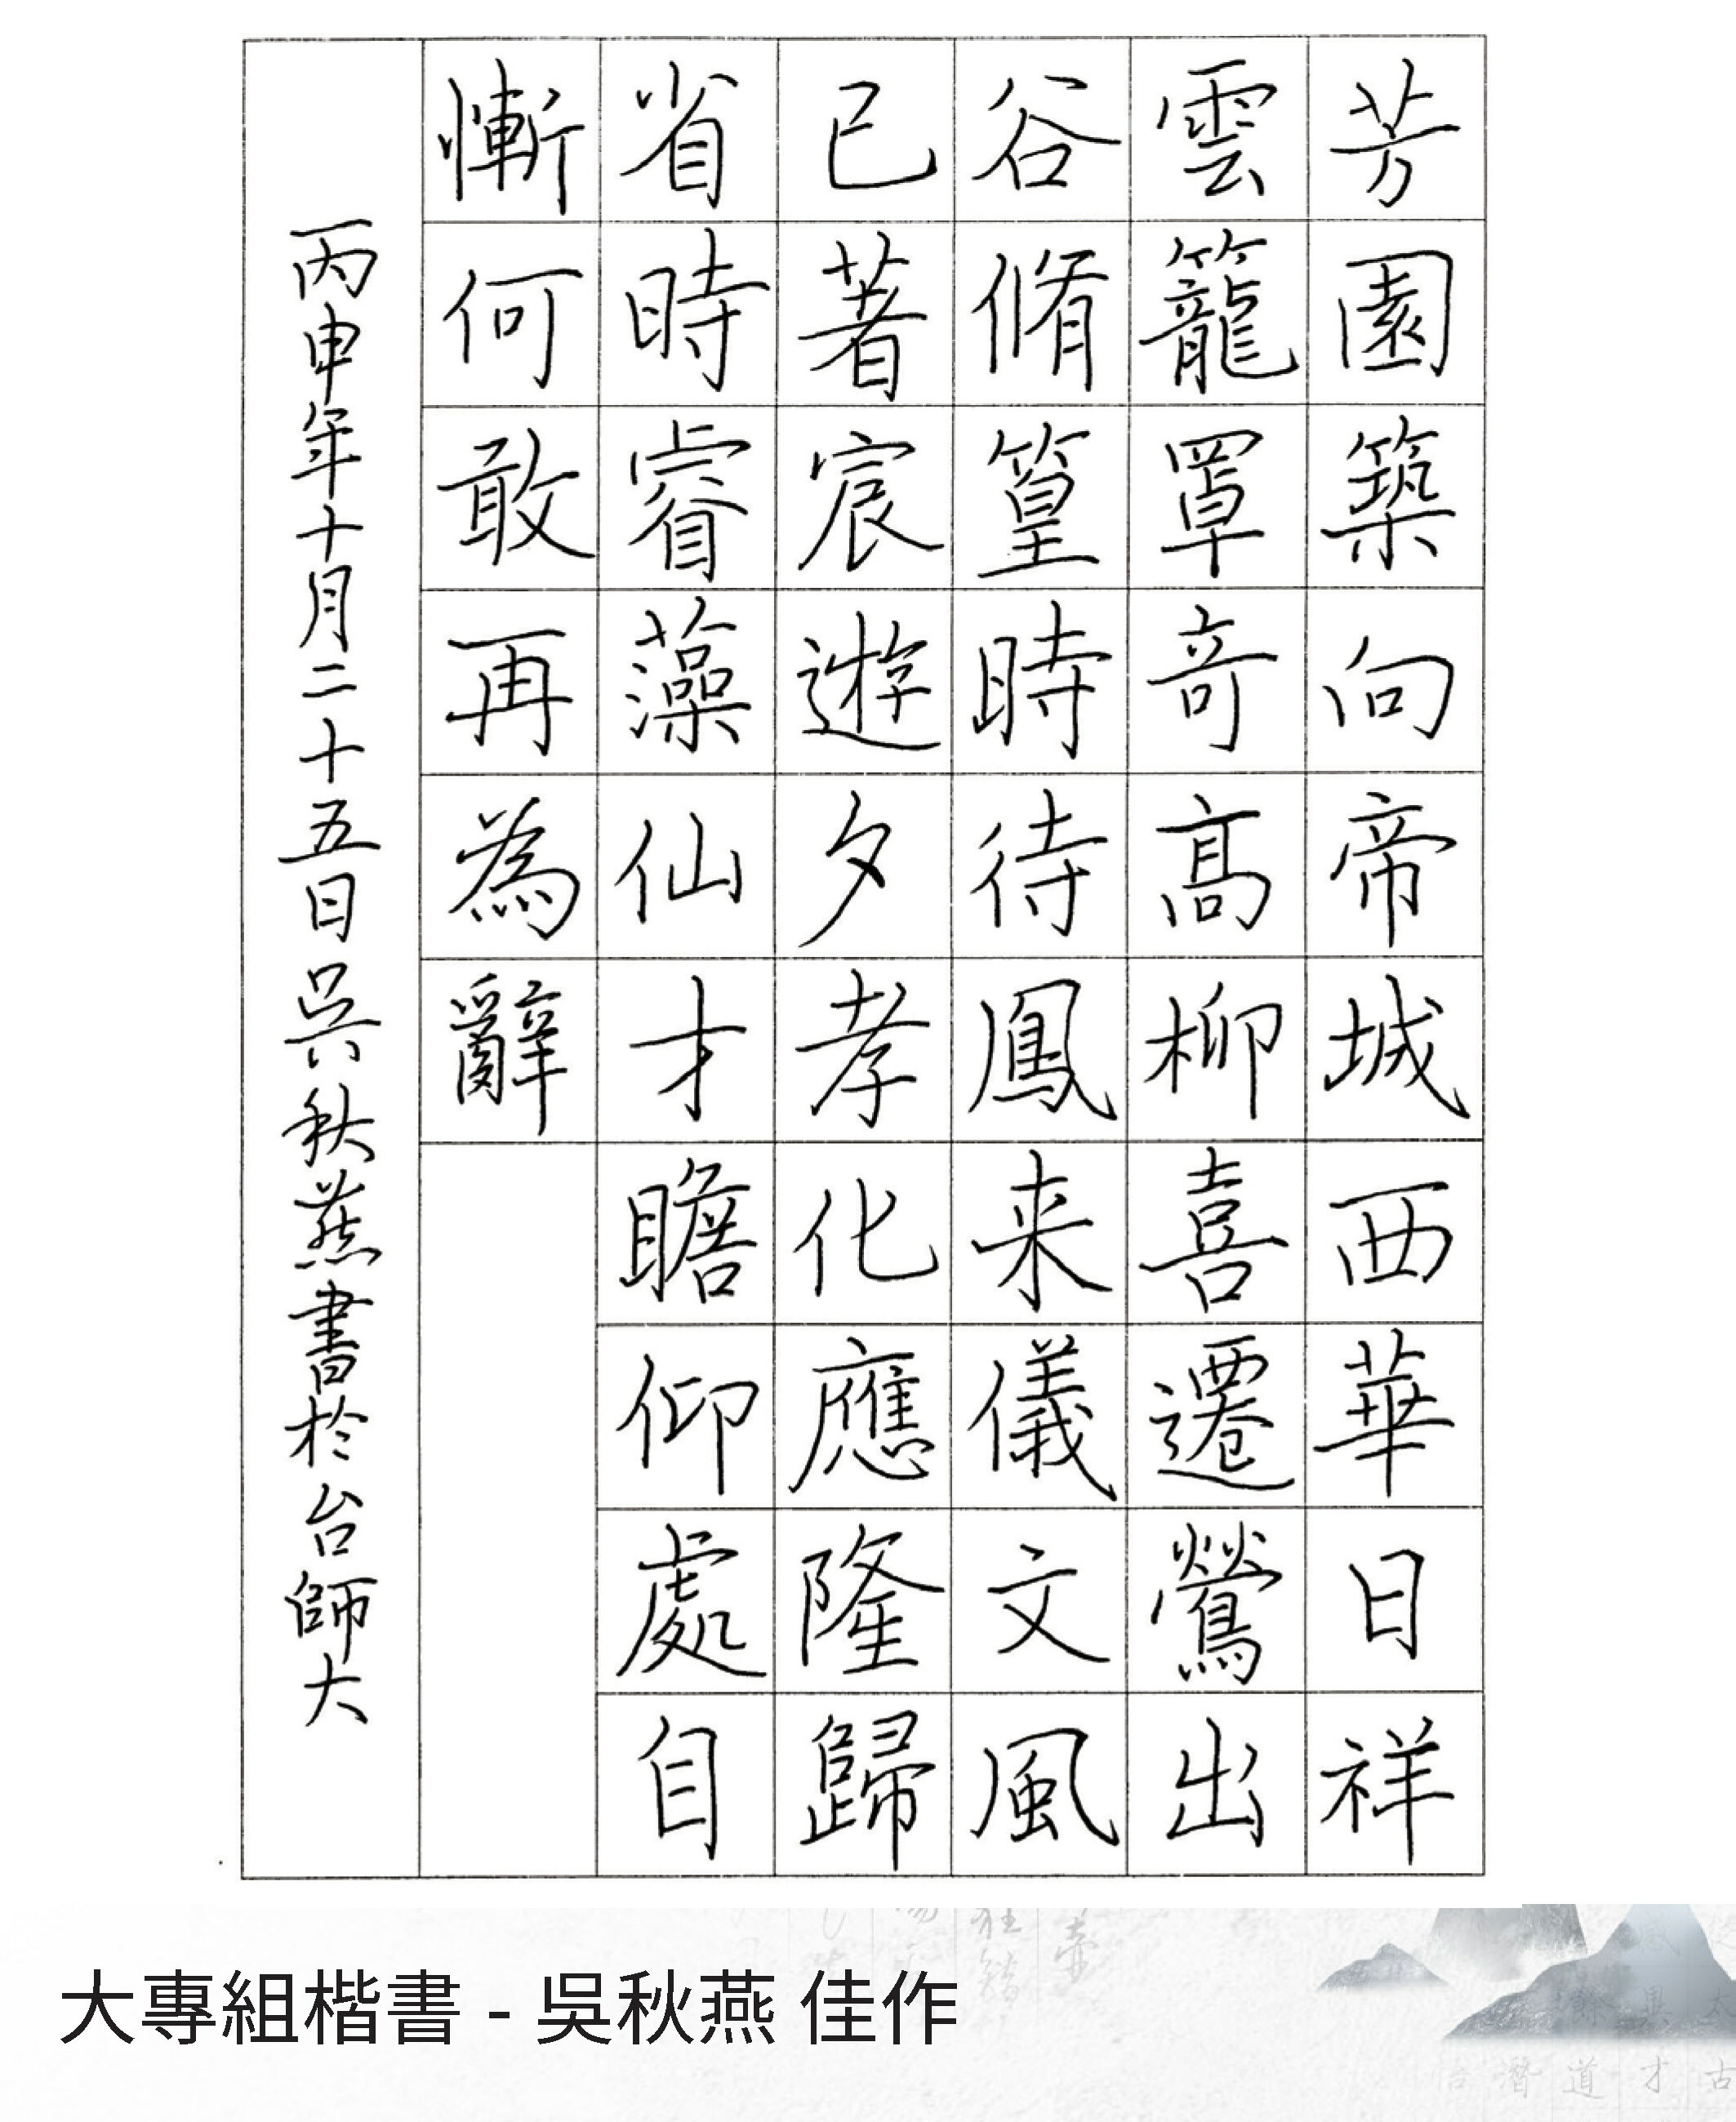 芳園築向帝城西華日祥
雲籠罩奇高柳喜遷鶯出
谷脩篁時待鳳来儀文風
已著宸遊夕孝化應隆歸
省時睿藻仙才瞻仰處自
慚何敢再為辭
丙申年十月二十五日吳秋燕書於台師大
大專組楷書 - 吳秋燕 佳作